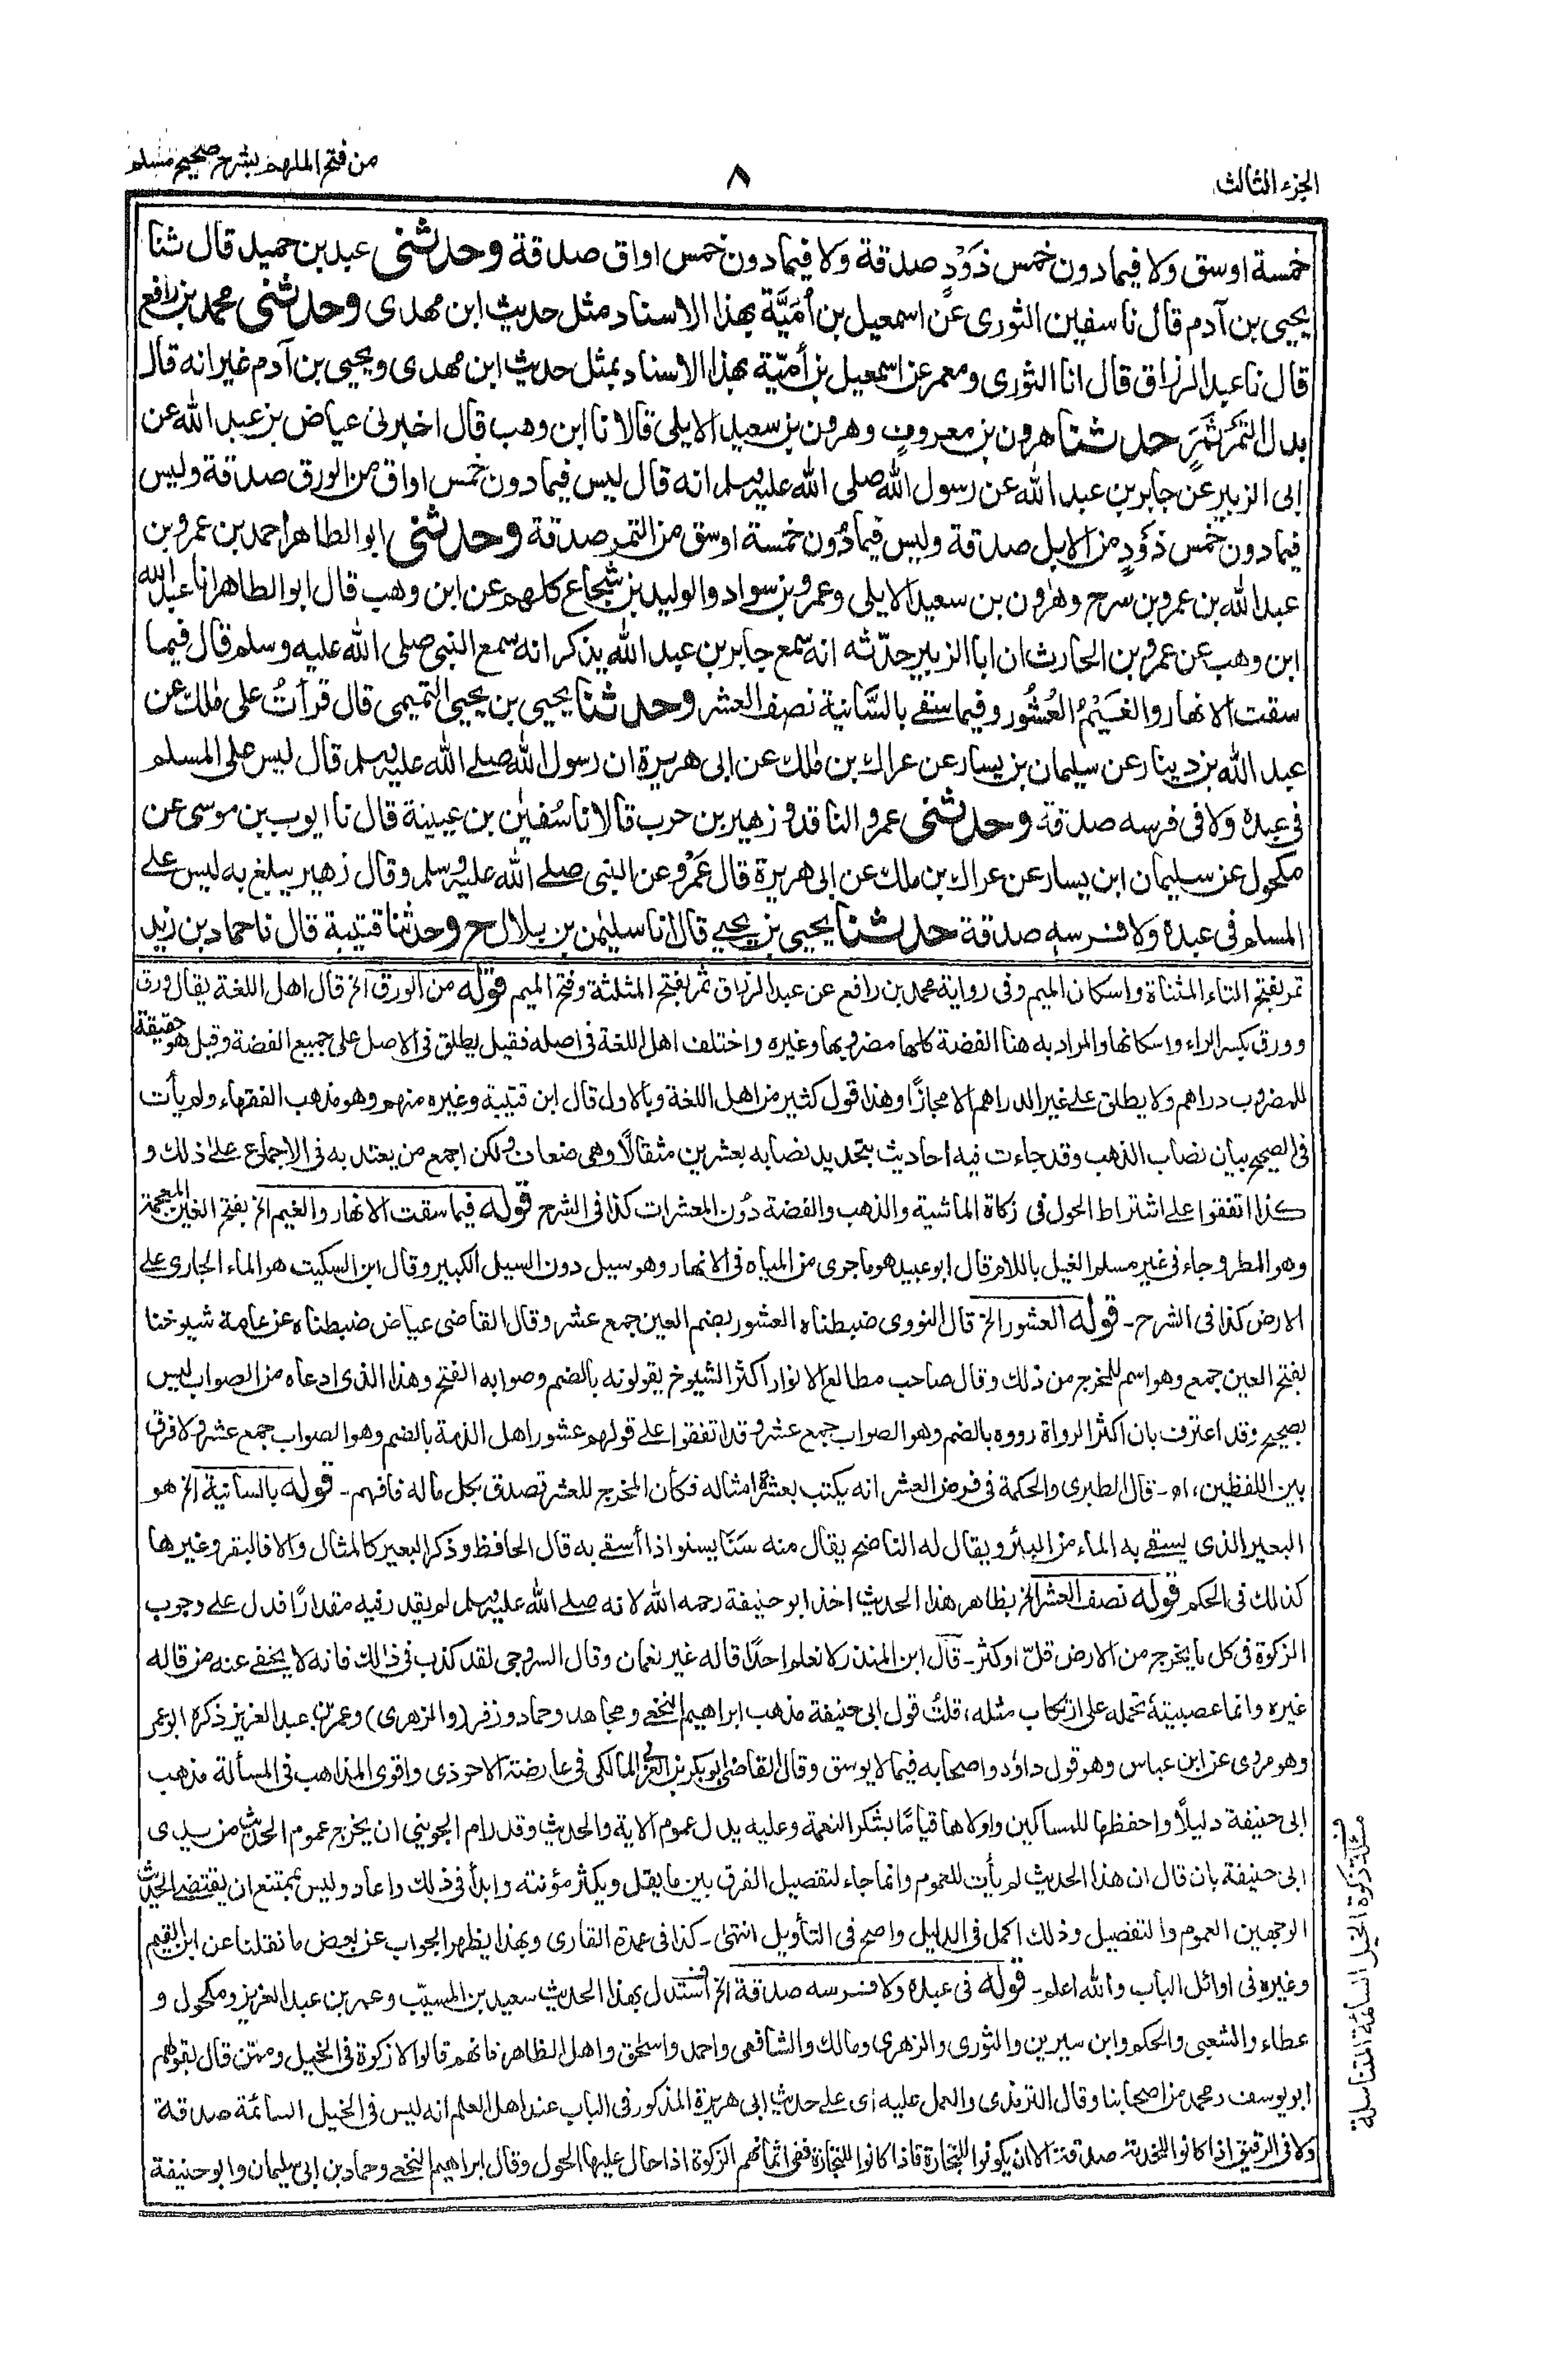 الجزء الثالث
٨
من فتح الملهم بشرح صحيح مسلم
خمسة اوسق ولا فيما دون خمس ذَوْدٍ صدقة ولا فيما دون خمس اواق صدقة وحدثنى عبد بن حميد قال ثنا
يحيى بن آدم قال نا سفين الثورى عن اسمعيل بن اُمَيَّة بهذا الاسناد مثل حديث ابن مهدى وحدثنى محمد بن رافع
قال نا عبد الرزاق قال انا الثورى ومعمر عن اسمعيل بن أميّة بهذا الاسناد بمثل حديث ابن مهدى ويحيى بن آدم غير انه قال
بدل التمر ثَمَرٍ حدثنا هرون بن معروف وهرون بن سعيد الايلى قالا نا ابن وهب قال اخبرنى عياض بن عبد الله عن
ابى الزبير عن جابر بن عبد الله عن رسول الله صلى الله عليه وسلم انه قال ليس فيما دون خمس اواق من الورق صدقة وليس
فيما دون خمس ذَوْدٍ من الابل صدقة وليس فيما دُون خمسة اوسق من التمر صدقة وحدثنى ابو الطاهر احمد بن عمرو بن
عبد الله بن عمرو بن سرح وهٰرون بن سعيد الايلى وعمرو بن سواد والوليد بن شجاع كلهم عن ابن وهب قال ابو الطاهر انا عبد الله
ابن وهب عن عمرو بن الحارث ان ابا الزبير حدّثه انه سمع جابر بن عبد الله يذكر انه سمع النبى صلى الله عليه وسلم قال فيما
سقت الانهار والغَيْمُ العُشُور وفيما سقے بالسَّانية نصف العشر وحدثنا يحيى بن يحيى التميمى قال قرأتُ على مٰلك عن
عبد الله بن دينار عن سليمان بن يسار عن عراك بن مٰلك عن ابى هريرة ان رسول الله صلے الله عليه وسلم قال ليس على المسلم
فى عبده ولا فى فرسه صدقة وحدثنى عمرو الناقد و زهير بن حرب قالا نا سُفيٰن بن عيينة قال نا ايوب بن موسى عن
مكحول عن سليمان ابن يسار عن عراك بن ملك عن ابى هريرة قال عَمْرو عن النبى صلے الله عليه وسلم وقال زهير يبلغ به ليس علے
المسلم فى عبده ولا فرسه صدقة حدثنا يحيى بن يحيے قال انا سليمٰن بن بلال ح وحدثنا قتيبة قال نا حماد بن زيد
تمر بفتح التاء المثناة واسكان الميم وفى رواية محمد بن رافع عن عبد الرزاق ثمر بفتح المثلثة وفتح الميم قوله من الورق الخ قال اهل اللغة يقال ورق
وورق بكسر الراء واسكانها والمراد به هنا الفضة كلها مضروبها وغيره واختلف اهل اللغة فى اصله فقيل يطلق فى الاصل على جميع الفضة وقيل هو حقيقة
للمضروب دراهم ولا يطلق على غير الدراهم الا مجازًا وهذا قول كثير من اهل اللغة وبالاول قال ابن قتيبة وغيره منهم وهو مذهب الفقهاء ولم يأت
فى الصحيح بيان نصاب الذهب وقد جاءت فيه احاديث بتحديد نصابه بعشرين مثقالًا وهى ضعاف ولكن اجمع من يعتد به فى الاجماع علے ذلك و
كذا اتفقوا على اشتراط الحول فى زكاة الماشية والذهب والفضة دون المعشرات كذا فى الشرح قوله فيما سقت الانهار والغيم الخ بفتح الغين المعجمة
وهو المطر وجاء فى غير مسلم الغيل باللام قال ابو عبيد هو ما جرى من المياه فى الانهار وهو سيل دون السيل الكبير وقال ابن السكيت هو الماء الجارى على
الارض كذا فى الشرح - قوله العشور الخ قال النووى ضبطناه العشور بضم العين جمع عشر وقال القاضى عياض ضبطناه عن عامة شيوخنا
بفتح العين جمع وهو اسم للمخرج من ذلك وقال صاحب مطالع الانوار اكثر الشيوخ يقولونه بالضم وصوابه الفتح وهذا الذى ادعاه من الصواب ليس
بصحيح وقد اعترف بان اكثر الرواة رووه بالضم وهو الصواب جمع عشر وقد اتفقوا على قولهم عشور اهل الذمة بالضم وهو الصواب جمع عشر ولا فرق
بين اللفظين، اھ - قال الطبرى والحكمة فى فرض العشر انه يكتب بعشرة امثاله فكأن المخرج للعشر تصدق بكل ماله فافهم - قوله بالسانية الخ هو
البعير الذى يسقے به الماء من البئر ويقال له الناضح يقال منه سَنَا يسنو اذا أسقے به قال الحافظ وذكر البعير كالمثال والا فالبقر وغيرها
كذلك فى الحكم قوله نصف العشر الخ بظاهر هذا الحديث اخذ ابو حنيفة رحمه الله لانه صلے الله عليه وسلم لم يقدر فيه مقدارًا فدل علے وجوب
الزكوة فى كل ما يخرج من الارض قلّ او كثر - قال ابن المنذر لا نعلم احدًا قاله غير نعمان وقال السروجى لقد كذب فى ذالك فانه لا يخفے عنه من قاله
غيره وانما عصبيته تحمله على ارتكاب مثله، قلتُ قول ابى حنيفة مذهب ابراهيم النخعے ومجاهد وحماد وزفر (والزهرى) وعمر بن عبد العزيز ذكره ابو عمر
وهو مروى عن ابن عباس وهو قول داؤد واصحابه فيما لا يوسق وقال القاضى ابو بكر بن العربى المالكى فى عارضة الاحوذى واقوى المذاهب فى المسألة مذهب
ابى حنيفة دليلًا واحفظها للمساكين واولاها قيامًا بشكر النعمة وعليه يدل عموم الاية والحديث وقد رام الجوينى ان يخرج عموم الحديث من يدى
ابى حنيفة بان قال ان هذا الحديث لم يأت للعموم وانما جاء لتفصيل الفرق بين ما يقل ويكثر مؤنته وابدأ فى ذلك واعاد وليس بممتنع ان يقتضے الحديث
الوجهين العموم والتفصيل وذلك اكمل فى الدليل واصح فى التأويل انتهى - كذا فى عمدة القارى وبهذا يظهر الجواب عن بعض ما نقلنا عن ابن القيم
وغيره فى اوائل الباب والله اعلم - قوله فى عبده ولا فرسه صدقة الخ استدل بهذا الحديث سعيد بن المسيّب وعمر بن عبد العزيز ومكحول و
عطاء والشعبى والحكم وابن سيرين والثورى والزهرى ومالك والشافعى واحمد واسحٰق واهل الظاهر فانهم قالوا لا زكوة فى الخيل وممن قال بقولهم
ابو يوسف ومحمد من اصحابنا وقال الترمذى والعمل عليه اى علے حديث ابى هريرة المذكور فى الباب عند اهل العلم انه ليس فى الخيل السائمة صدقة
ولا فى الرقيق اذا كانوا للخدمة صدقة الا ان يكونوا للتجارة فاذا كانوا للتجارة ففى اثمانهم الزكوة اذا حال عليها الحول وقال ابراهيم النخعے وحماد بن ابى سليمان وابو حنيفة
مسئلة زكوة الخيل السائمة المتناسلة